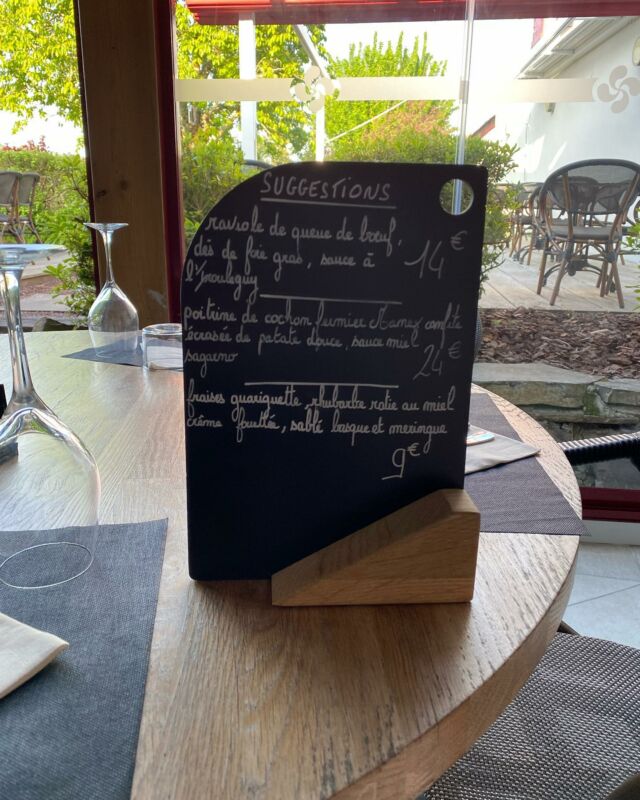 SUGGESTIONS
raviole de queue de bœuf,
dés de foie gras, sauce à 14 €
l'Irouleguy
poitrine de cochon fermier Mamex confite
écrasée de patate douce, sauce miel
sagarno 24 €
fraises guariguette, rhubarbe rotie au miel
crême fouttée, sablé basque et meringue
9 €